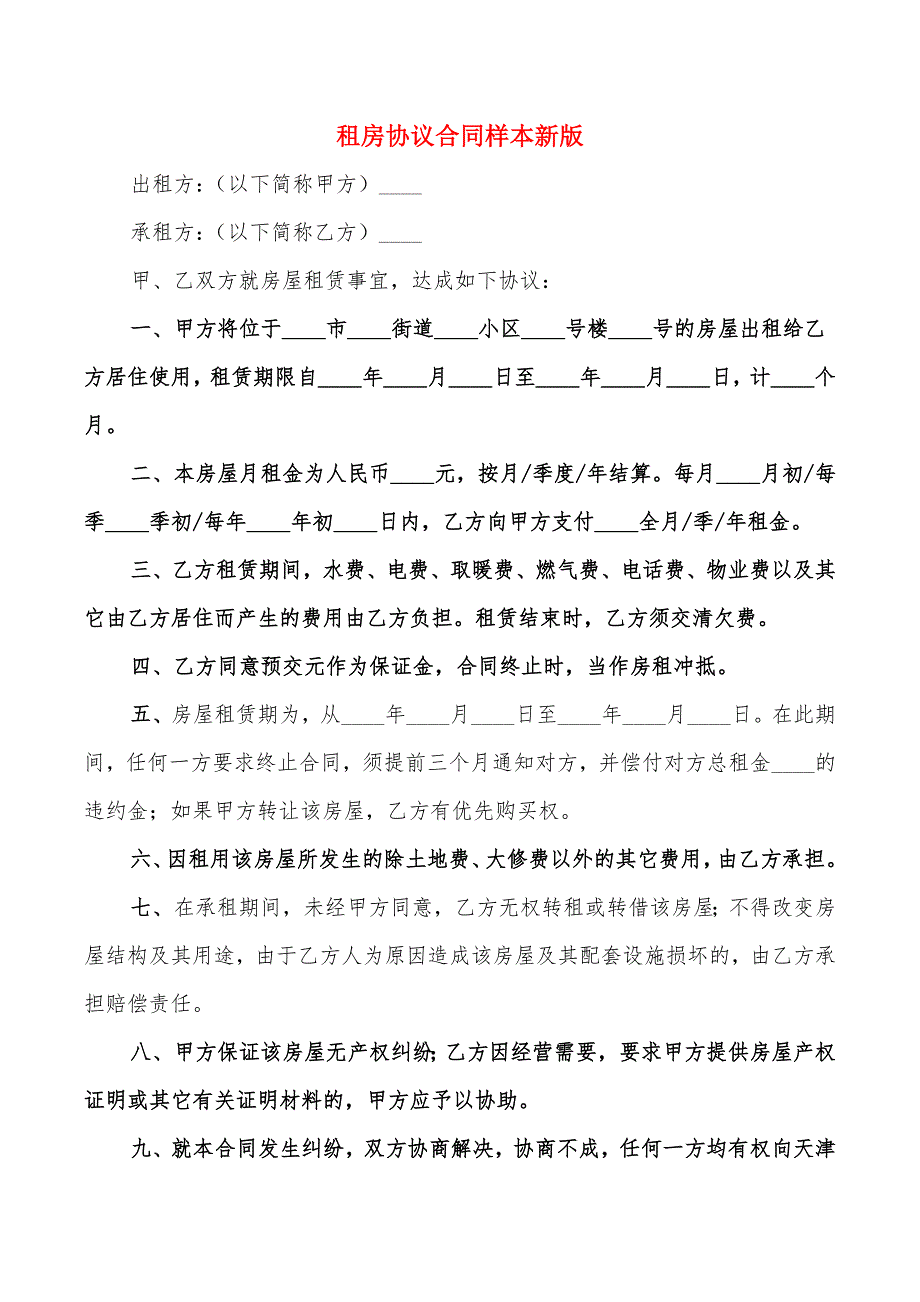 租房协议合同样本新版
出租方：（以下简称甲方）____
承租方：（以下简称乙方）____
甲、乙双方就房屋租赁事宜，达成如下协议：
一、甲方将位于____市____街道____小区____号楼____号的房屋出租给乙
方居住使用，租赁期限自____年____月____日至____年____月____日，计____个
月。
二、本房屋月租金为人民币____元，按月/季度/年结算。每月____月初/每
季____季初/每年____年初____日内，乙方向甲方支付____全月/季/年租金。
三、乙方租赁期间，水费、电费、取暖费、燃气费、电话费、物业费以及其
它由乙方居住而产生的费用由乙方负担。租赁结束时，乙方须交清欠费。
四、乙方同意预交元作为保证金，合同终止时，当作房租冲抵。
五、房屋租赁期为，从____年____月____日至____年____月____日。在此期
间，任何一方要求终止合同，须提前三个月通知对方，并偿付对方总租金____的
违约金；如果甲方转让该房屋，乙方有优先购买权。
六、因租用该房屋所发生的除土地费、大修费以外的其它费用，由乙方承担。
七、在承租期间，未经甲方同意，乙方无权转租或转借该房屋；不得改变房
屋结构及其用途，由于乙方人为原因造成该房屋及其配套设施损坏的，由乙方承
担赔偿责任。
八、甲方保证该房屋无产权纠纷；乙方因经营需要，要求甲方提供房屋产权
证明或其它有关证明材料的，甲方应予以协助。
九、就本合同发生纠纷，双方协商解决，协商不成，任何一方均有权向天津